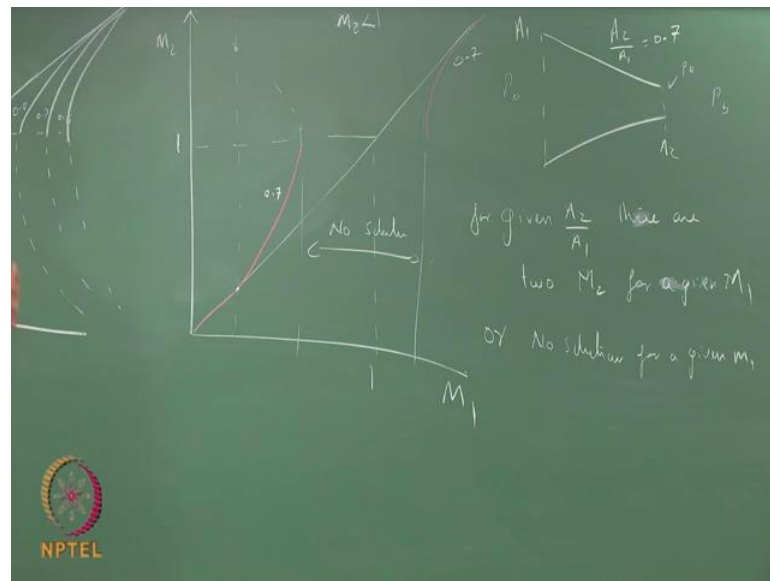 M₂
M₂<1
1
0.7
0.7
No solution
1
M₁
A₁
A₂/A₁ = 0.7
P₀
P₀
P_b
A₂
for given A₂/A₁ there are
two M₂ for a given M₁
or No solution for a given M₁
NPTEL